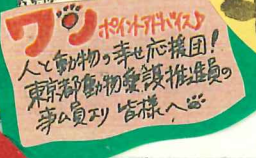 ワンポイントアドバイス♪
人と動物の幸せ応援団!
東京都動物愛護推進員の
事ム員より 皆様へ